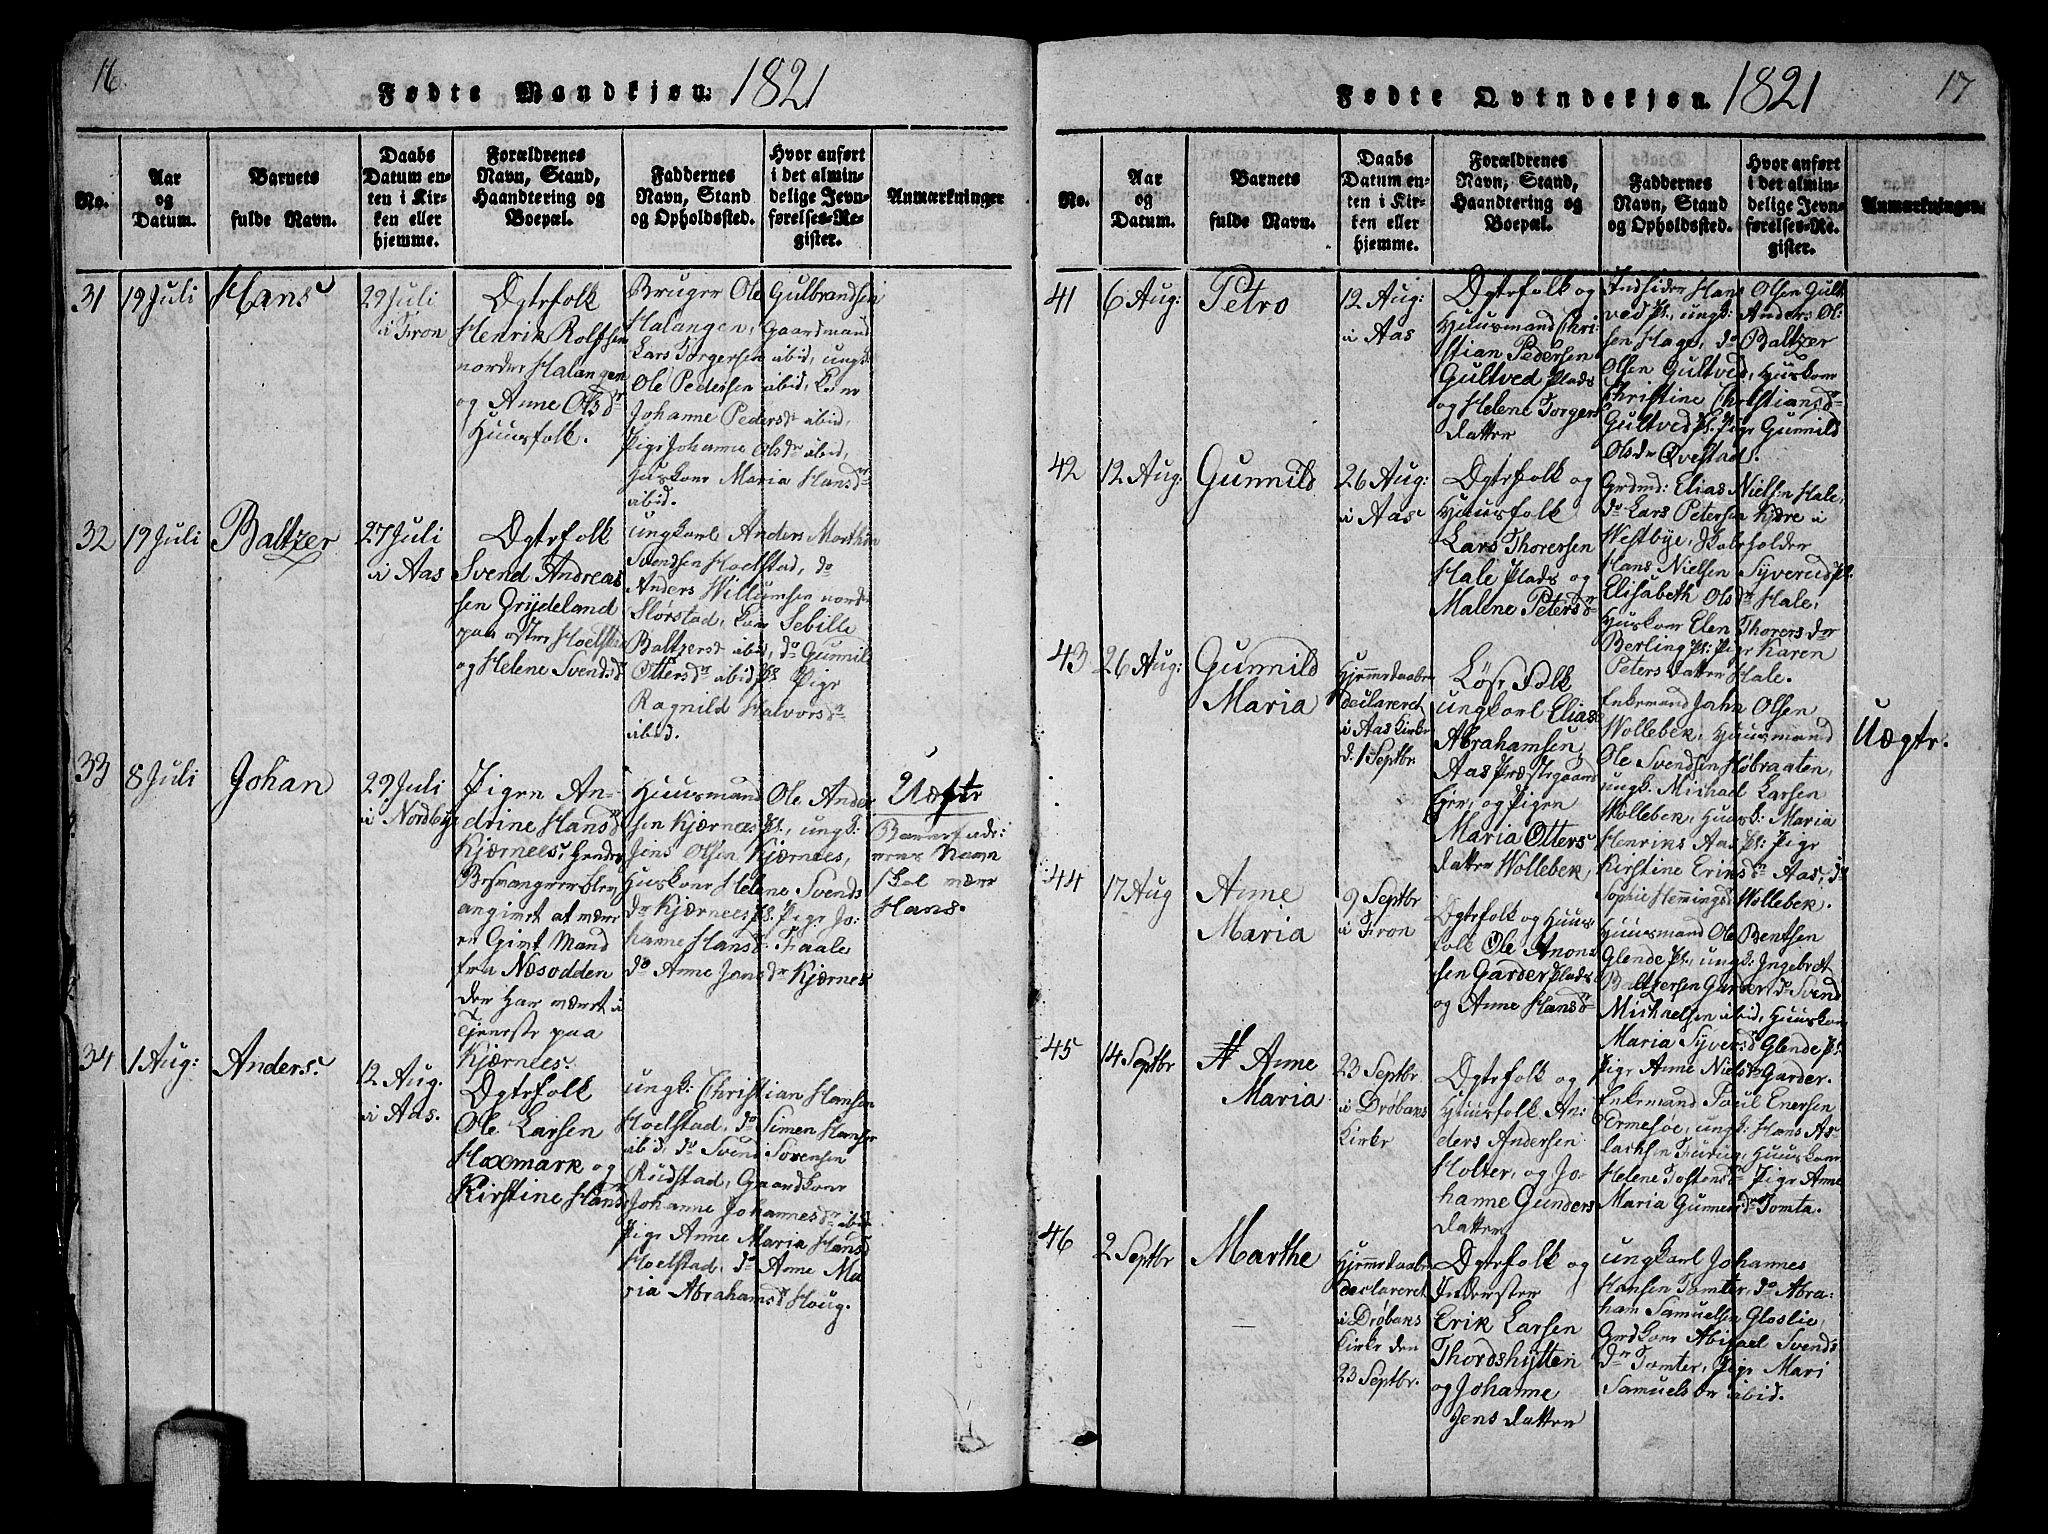 16.
Fødte Mandkjøn: 1821
No.
Aar
og
Datum.
Barnets
fulde Navn.
Daabs
Datum en-
ten i Kir-
ken eller
hjemme.
Forældrenes
Navn, Stand,
Haandtering og
Boepæl.
Faddernes
Navn, Stand
og Opholdssted.
Hvor anført
i det almin-
delige Jevn-
førelses-Re-
gister.
Anmærkninger
31
19 Juli
Hans
29 Juli
i Fron
Ægtefolk
Henrik Rolfsen
nordre Halangen
og Anne Olsdr
Huusfolk.
Bruger Ole Gulbrandsen
Halangen, Gaardmand
Lars Torgersen ibid, ungk
Ole Pedersen ibid, Kone
Johanne Pedersdr ibid,
Pige Johanne Olsdr ibid,
Huskone Maria Hansdr
ibid.
32
19 Juli
Baltzer
27 Juli
i Aas
Ægtefolk
Svend Andreas
sen Frydeland
paa østre Hoelstad
og Helene Svendsdr
ungkarl Anders Marthin
Svendsen Hoelstad, do
Anders Willumsen nordre
Slørstad, Kone Sebille
Baltzersdr ibid, do Gunnild
Ottersdr ibid Pl. Pige
Ragnild Halvorsdr
ibid.
33
8 Juli
Johan
29 Juli
i Nordbye
Pigen An-
drine Hansdr
Kjærnees, hendes
Besvangrer blev
angivet at være
en Givt Mand
fra Næsodden
der har været i
Tjeneste paa
Kjærnees.
Huusmand Ole Ander
sen Kjærnees Pl., ungk:
Jens Olsen Kjærnees,
Huskone Helene Svends
dr Kjærnees Pl. Pige Jo-
hanne Hansdr Faale
do Anne Jansdr Kjærnes
Uægte
Barnefade-
rens Navn
skal være
Hans.
34
1 Aug:
Anders
12 Aug.
i Aas.
Ægtefolk
Ole Larsen
Haxmark og
Kirstine Hansdr
ungk: Christian Hansen
Hoelstad, do Simen Hansen
ibid, do Svend Sørensen
Rudstad, Gaardkone
Johanne Johannesdr ibid
Pige Anne Maria Hansdr
Hoelstad, do Anne Ma-
ria Abrahamsdr Houg.
17
Fødte Qvindekjøn. 1821
No.
Aar
og
Datum.
Barnets
fulde Navn.
Daabs
Datum en-
ten i Kir-
ken eller
hjemme.
Forældrenes
Navn, Stand,
Haandtering og
Boepæl.
Faddernes
Navn, Stand
og Opholdssted.
Hvor anført
i det almin-
delige Jevn-
førelses-Re-
gister.
Anmærkninger.
41
6 Aug:
Petro
12 Aug:
i Aas
Ægtefolk og
Huusmand Chri-
stian Pedersen
Gultved Plads
og Helene Torgers
datter
Indsider Hans Olsen Gult
ved Pl., ungk: Anders Ol-
sen Hage, do Baltzer
Olsen Gultved, Huskone
Christine Christiansdr
Gultved Pl. Pige Gunnild
Olsdr Qvestad.
42
12 Aug:
Gunnild
26 Aug:
i Aas
Ægtefolk og
Huusfolk
Lars Thoresen
Hale Plads og
Malene Petersdr
Grdmd: Elias Nielsen Hale,
do Lars Petersen Kjære i
Westbye, Skoleholder
Hans Nielsen Syverud Pl.
Elisabeth Olsdr Hale,
Huskone Elen Thorersdr
Berling Pl: Pige Karen
Peters datter Hale.
43
26 Aug:
Gunnild
Maria
Hjemmedaaben
declareret
i Aas Kirke
d. 1 Septbr
Løse Folk
ungkarl Elias
Abrahamsen
Aas Præstegaard
Eier, og Pigen
Maria Otters
datter Wollebek
Enkemand John Olsen
Wollebek, Huusmand
Ole Svendsen Høbraaten,
ungk: Michael Larsen
Wollebek, Husk: Maria
Henriks Aas Pl: Pige
Kirstine Eriksdr Aas, do
Sophie Hemmingsdr Wollebek.
Uægte.
44
17 Aug
Anne
Maria
9 Septbr
i Fron
Ægtefolk og Huus
folk Ole Anon
sen Garder Plads
og Anne Hansdr
Huusmand Ole Bentsen
Glende Pl., ungk: Ingebret
Baltzersen Garder do Svend
Michaelsen ibid, Huuskone
Maria Syversdr Glende Pl.
Pige Anne Nielsdr Garder.
45
14 Septbr
# Anne
Maria
23 Septbr
i Drøbaks
Kirke
Ægtefolk og
Huusfolk An-
ders Andersen
Holter, og Jo-
hanne Gunders
datter
Enkemand Poul Enersen
Ermesoe, ungk: Hans As-
lachsen Furug, Huuskone
Helene Tostensdr Pige Anne
Maria Gunnersdr Tomta.
46
2 Septbr
Marthe
Hjemmedaaben
declareret
i Drøbaks
Kirke den
23 Septbr.
Ægtefolk og
Inderster
Erik Larsen
Thordshytten
og Johanne
Jens datter
ungkarl Johannes
Hansen Tomter, do Abra-
ham Samuelsen Gloslie,
Grdkone Abigael Svends
dr Tomter, Pige Mari
Samuelsdr ibid.